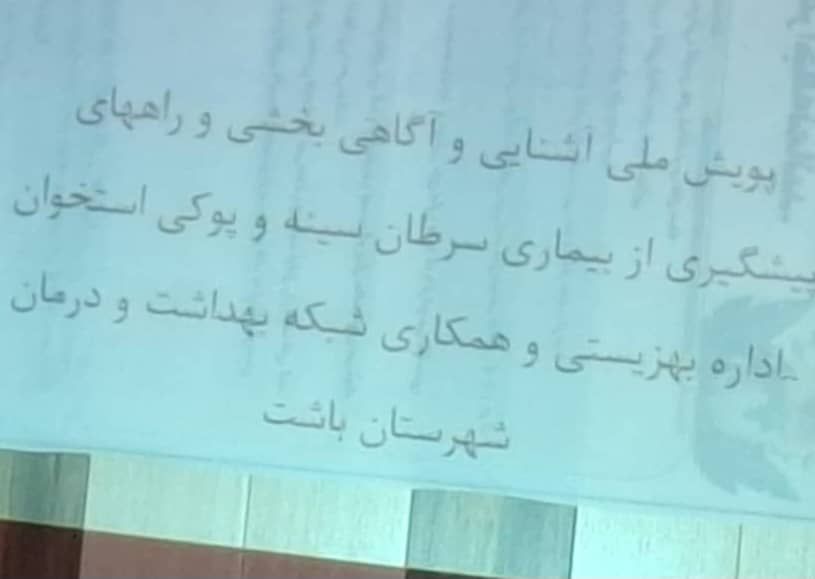 پویش ملی آشنایی و آگاهی بخشی و راههای
پیشگیری از بیماری سرطان سینه و پوکی استخوان
ـاداره بهزیستی و همکاری شبکه بهداشت و درمان
شهرستان باشت